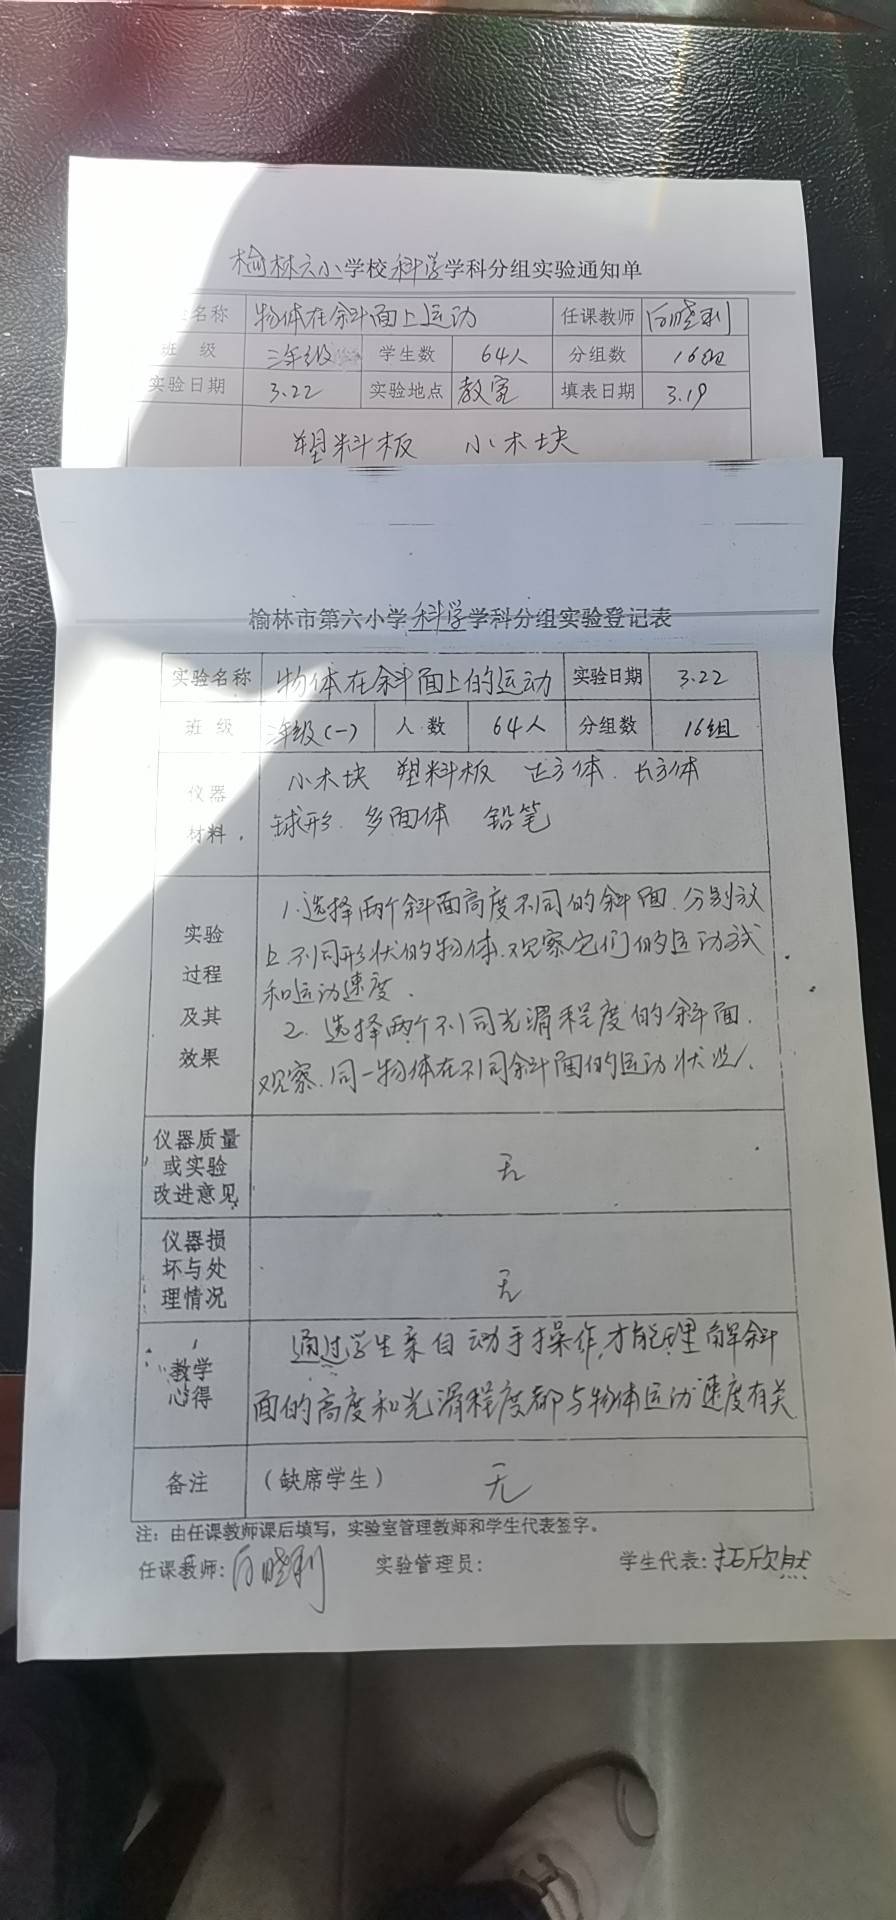 榆林六小学校科学学科分组实验通知单
名称 物体在斜面上运动 任课教师 白晓利
班 级 三年级 学生数 64人 分组数 16组
实验日期 3.22 实验地点 教室 填表日期 3.19
塑料板 小木块
榆林市第六小学科学学科分组实验登记表
实验名称 物体在斜面上的运动 实验日期 3.22
班 级 三年级(一) 人 数 64人 分组数 16组
仪器
材料
小木块 塑料板 正方体. 长方体
球形. 多面体 铅笔
实验
过程
及其
效果
1.选择两个斜面高度不同的斜面.分别放
上不同形状的物体.观察它们的运动方式
和运动速度.
2. 选择两个不同光滑程度的斜面.
观察.同一物体在不同斜面的运动状况.
仪器质量
或实验
改进意见
无
仪器损
坏与处
理情况
无
教学
心得
通过学生亲自动手操作,才能理解斜
面的高度和光滑程度都与物体运动速度有关
备注 (缺席学生) 无
注：由任课教师课后填写，实验室管理教师和学生代表签字。
任课教师: 白晓利 实验管理员: 学生代表: 拓欣然